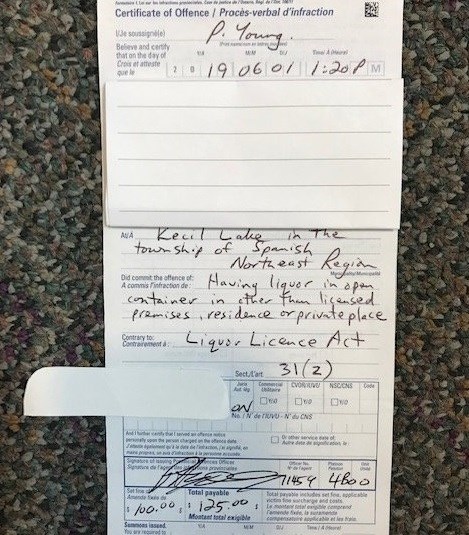 Certificate of Offence / Procès-verbal d'infraction
I/Je soussigné(e) P. Young.
(Print name/nom en lettres moulées)
Believe and certify
that on the day of
Croix et atteste
que le
Y/A M/M D/J Time/À (Heure)
2 0 19 06 01 1:20P M
At/À Kecil Lake in the
township of Spanish
Northeast Region
Municipality/Municipalité
Did commit the offence of:
A commis l'infraction de :
Having liquor in open
container in other than licensed
premises, residence or private place
Contrary to:
Contrairement à :
Liquor Licence Act
Sect./L'art. 31(2)
Juris Commercial CVOR/IUVU NSC/CNS Code
Aut. lég. Utilitaire
ON Y/O Y/O Y/O
No. / N° de l'IUVU - N° du CNS
And I further certify that I served an offence notice
personally upon the person charged on the offence date.
Or other service date of:
Autre date de signification, le :
Signature of issuing Provincial Offences Officer
Signature de l'agent des infractions provinciales
Officer No. Platoon Unit
N° de l'agent Peloton Unité
11459 4B00
Set fine of
Amende fixée de
$ 100.00
Total payable
$ 125.00
Montant total exigible
Total payable includes set fine, applicable
victim fine surcharge and costs.
Le montant total exigible comprend
l'amende fixée, la suramende
compensatoire applicable et les frais.
Summons issued. Y/A M/M D/J Time / À (Heure)
You are required to